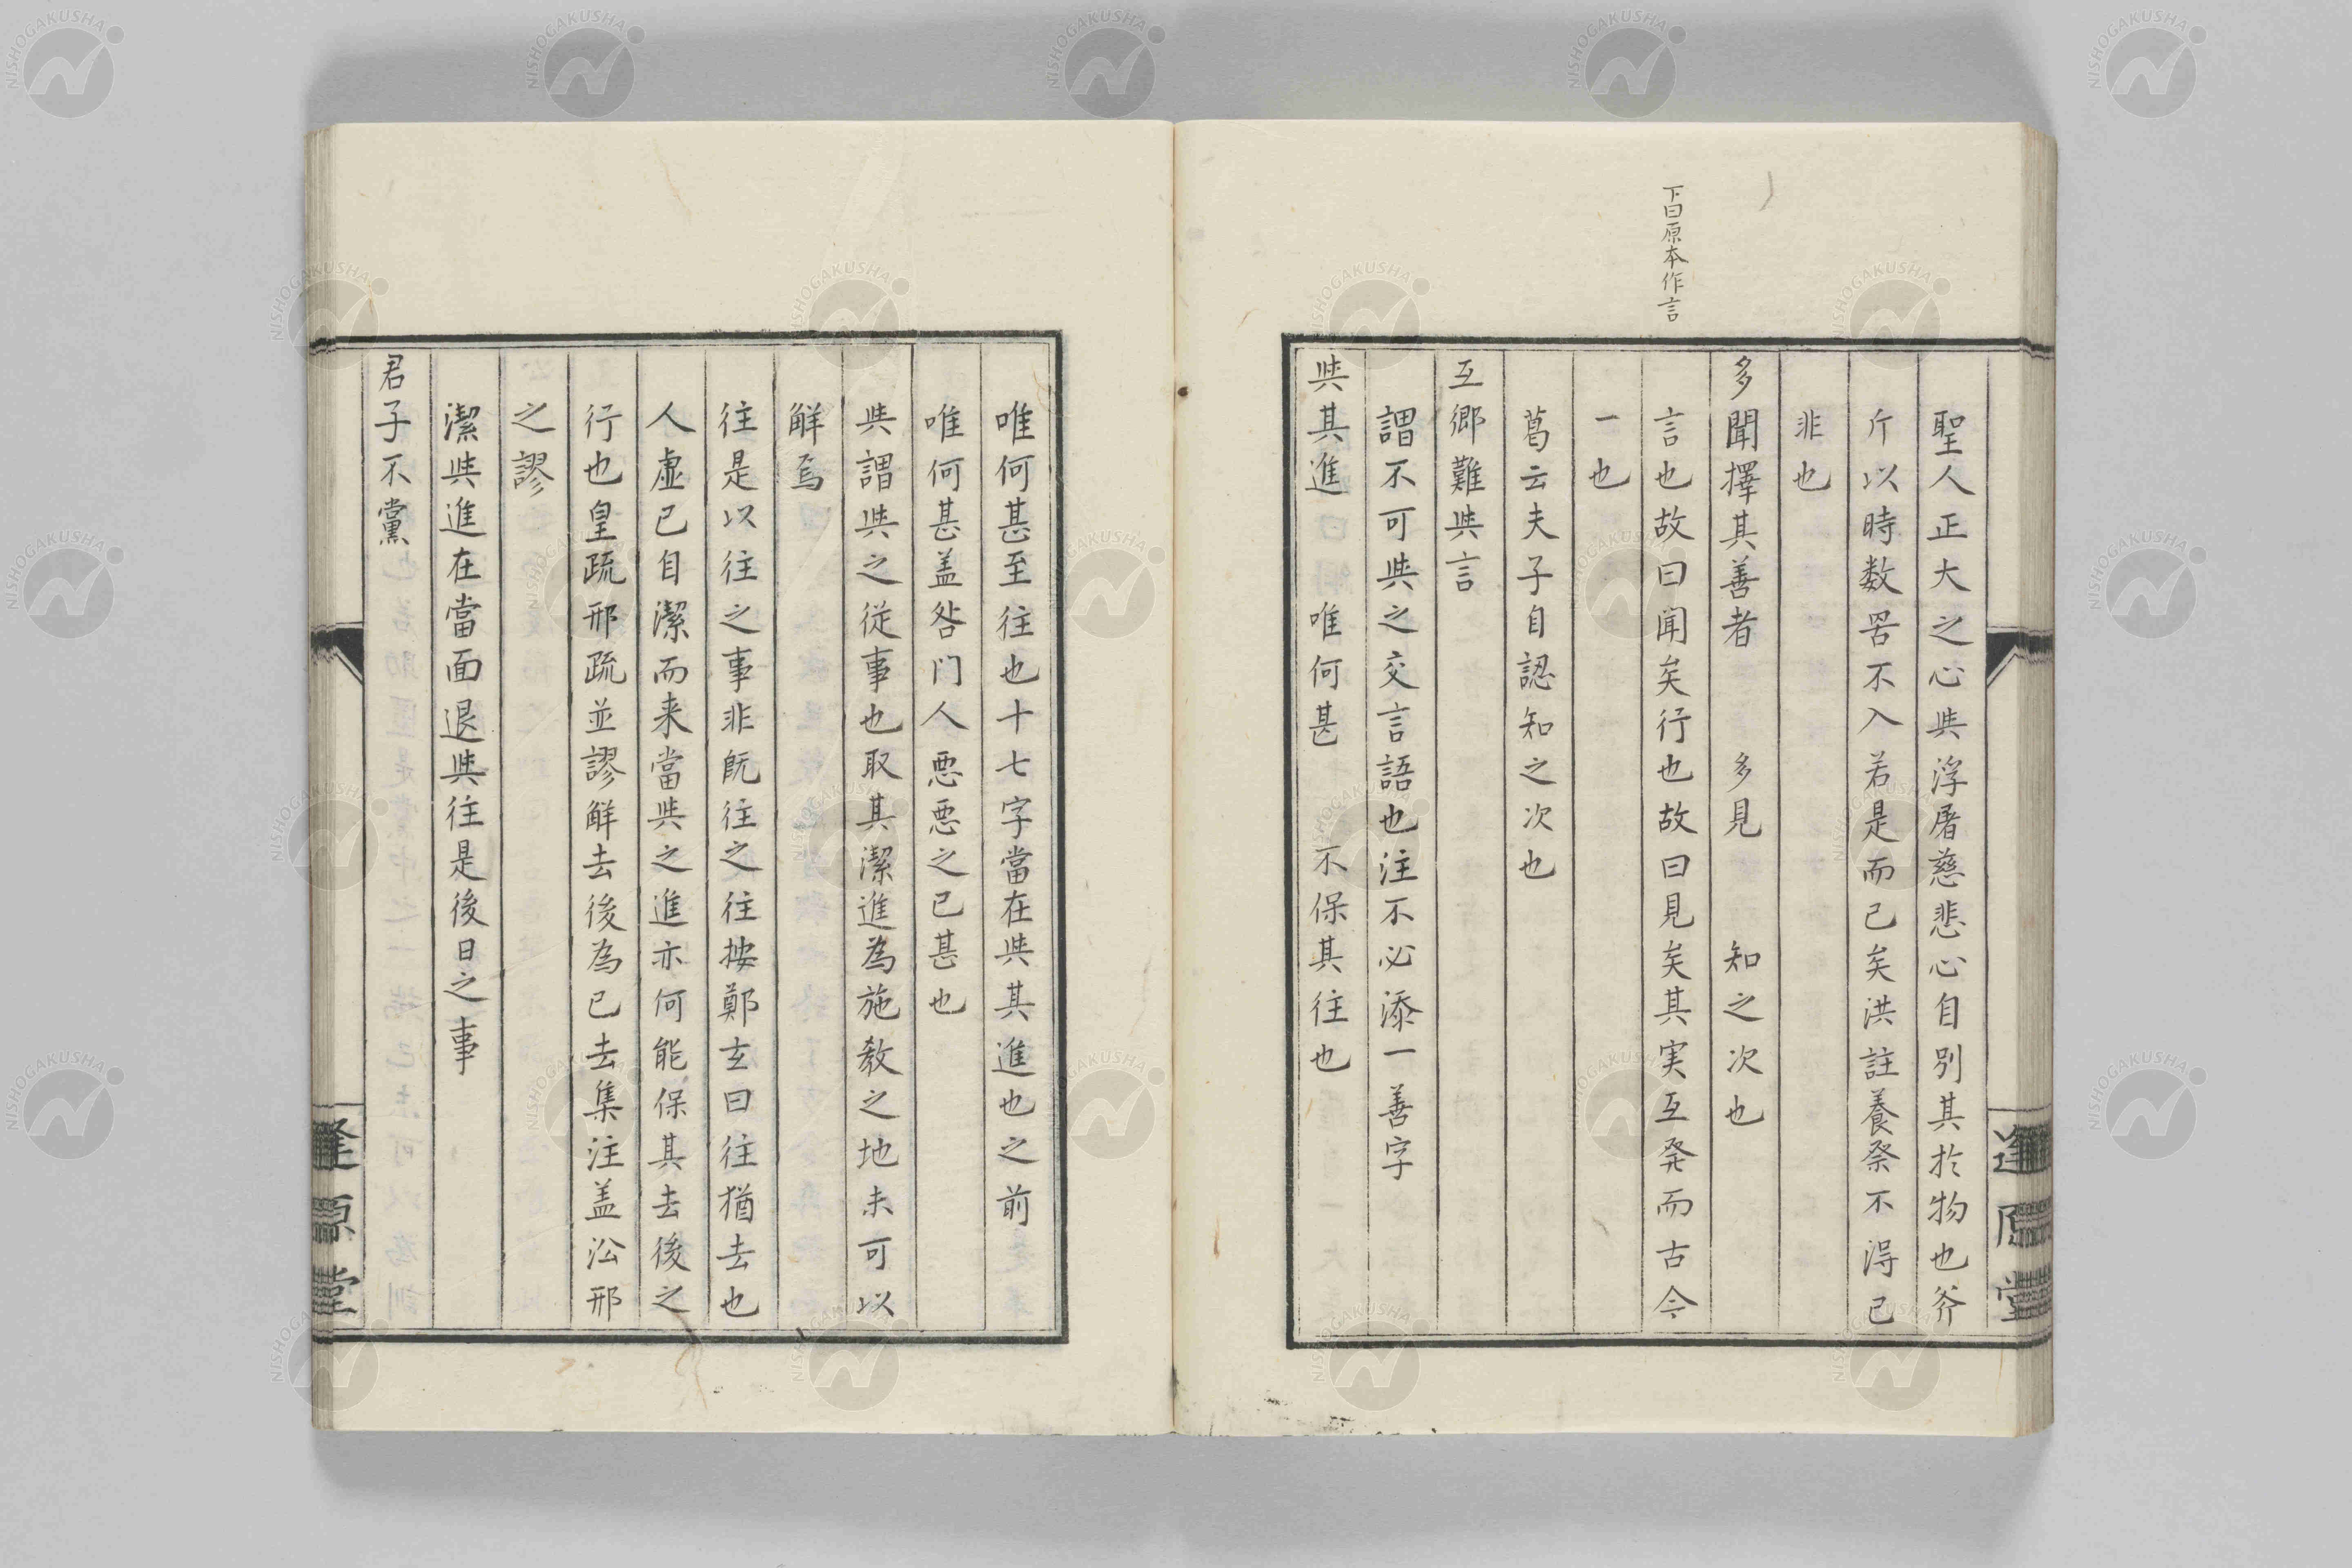 下曰原本作言
聖人正大之心與浮屠慈悲心自別其於物也斧
斤以時数罟不入若是而已矣洪註養祭不得已
非也
多聞擇其善者　多見　知之次也
言也故曰聞矣行也故曰見矣其実互発而古今
一也
葛云夫子自認知之次也
互郷難與言
謂不可與之交言語也注不必添一善字
與其進　唯何甚　不保其往也
逢原堂
唯何甚至往也十七字當在與其進也之前
唯何甚盖咎门人悪悪之已甚也
與謂與之従事也取其潔進為施教之地未可以
觧焉
往是以往之事非既往之往按鄭玄曰往猶去也
人虚己自潔而来當與之進亦何能保其去後之
行也皇疏邢疏並謬觧去後為已去集注盖㳂邢
之謬
潔與進在當面退與往是後日之事
君子不黨
逢原堂
NISHOGAKUSHA